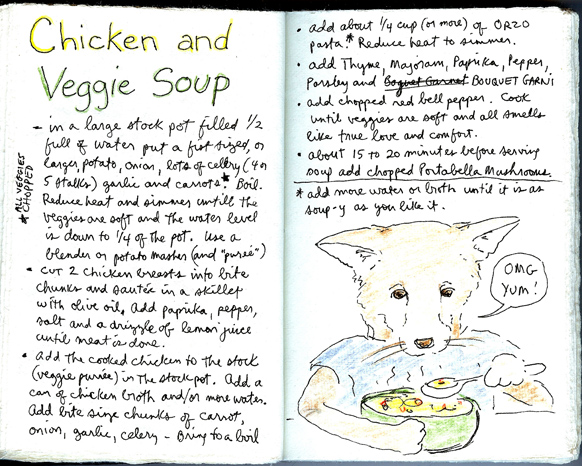 Chicken and
Veggie Soup
- in a large stock pot filled 1/2
full of water put a fist sized, or
larger, potato, onion, lots of celery (4 or
5 stalks) garlic and carrots.* Boil.
Reduce heat and simmer untill the
veggies are soft and the water level
is down to 1/4 of the pot. Use a
blender or potato masher (and "purée")
* ALL VEGGIES
CHOPPED
• cut 2 chicken breasts into bite
chunks and sautée in a skillet
with olive oil. Add paprika, pepper,
salt and a drizzle of lemon juice
until meat is done.
• Add the cooked chicken to the stock
(veggie purée) in the stockpot. Add a
can of chicken broth and/or more water.
Add bite size chunks of carrot,
onion, garlic, celery - Bring to a boil
• add about 1/4 cup (or more) of ORZO
pasta.* Reduce heat to simmer.
• add Thyme, Majoram, Paprika, Pepper,
Parsley and BOUQUET GARNI
• add chopped red bell pepper. Cook
until veggies are soft and all smells
like true love and comfort.
• about 15 to 20 minutes before serving
soup add chopped Portabella Mushrooms.
* add more water or broth until it is as
soup-y as you like it.
OMG
YUM!